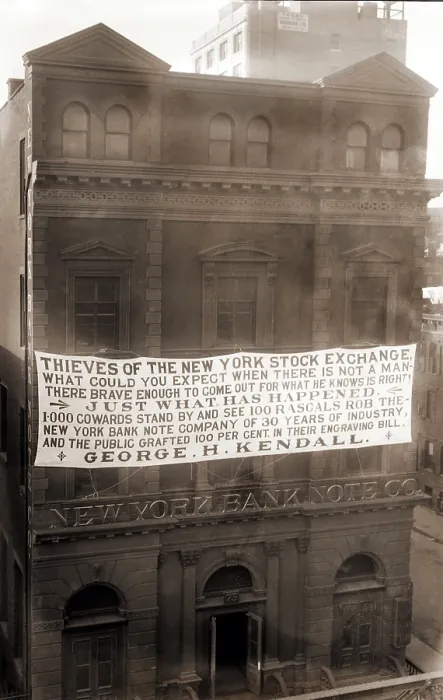 THIEVES OF THE NEW YORK STOCK EXCHANGE,
WHAT COULD YOU EXPECT WHEN THERE IS NOT A MAN
THERE BRAVE ENOUGH TO COME OUT FOR WHAT HE KNOWS IS RIGHT?
JUST WHAT HAS HAPPENED.
1.000 COWARDS STAND BY AND SEE 100 RASCALS ROB THE
NEW YORK BANK NOTE COMPANY OF 30 YEARS OF INDUSTRY,
AND THE PUBLIC GRAFTED 100 PER CENT. IN THEIR ENGRAVING BILL.
GEORGE. H. KENDALL.
NEW YORK BANK NOTE CO.
75